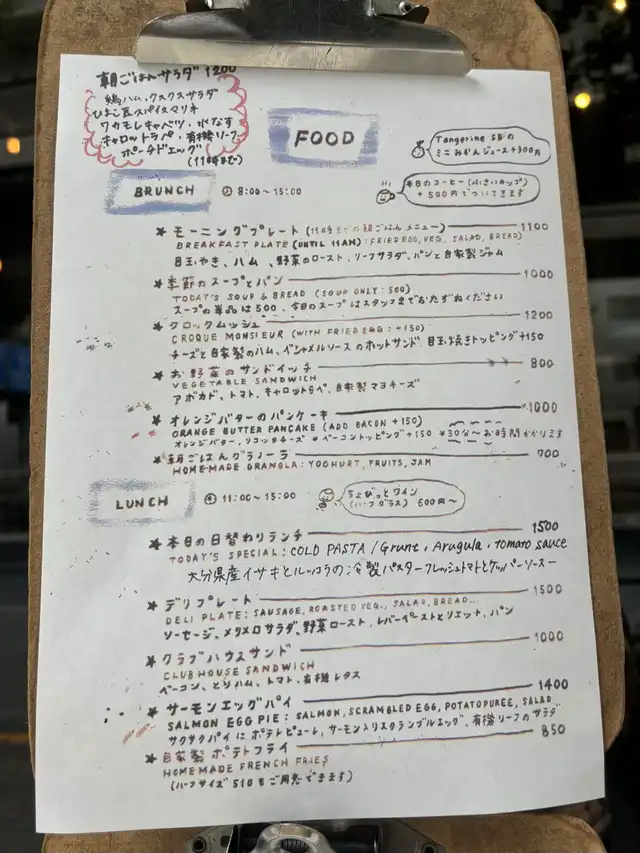 朝ごはんサラダ 1200
鶏ハム、クスクスサラダ
ひよこ豆スパイスマリネ
ワカモレキャベツ・水なす
キャロットラペ・有機リーフ
ポーチドエッグ
(11時まで)
FOOD
Tangerine SBの
ミニみかんジュース +300円
BRUNCH
8:00〜15:00
本日のコーヒー(小さいカップ)
+500円でついてきます
★ モーニングプレート (11時までの朝ごはんメニュー) 1100
BREAKFAST PLATE (UNTIL 11AM): FRIED EGG, VEG, SALAD, BREAD)
目玉やき、ハム、野菜のロースト、リーフサラダ、パンと自家製ジャム
★ 季節のスープとパン 1000
TODAY'S SOUP & BREAD (SOUP ONLY: 500)
スープの単品は500、今日のスープはスタッフまでおたずねください
★ クロックムッシュ 1200
CROQUE MONSIEUR (WITH FRIED EGG: +150)
チーズと自家製のハム、ベシャメルソースのホットサンド 目玉焼きトッピング+150
★ お野菜のサンドイッチ 800
VEGETABLE SANDWICH
アボカド、トマト、キャロットラペ、自家製マヨネーズ
★ オレンジバターのパンケーキ 1000
ORANGE BUTTER PANCAKE (ADD BACON +150)
オレンジバター、リコッタチーズ *ベーコントッピング+150 *30分〜お時間かかります
★ 朝ごはんグラノーラ 700
HOMEMADE GRANOLA: YOGHURT, FRUITS, JAM
LUNCH
11:00〜15:00
ちょびっとワイン
(ハーフグラス) 600円〜
★ 本日の日替わりランチ 1500
TODAY'S SPECIAL: COLD PASTA / Grunt, Arugula, tomato sauce
大分県産イサキとルッコラの冷製パスターフレッシュトマトとケッパーソースー
★ デリプレート 1500
DELI PLATE: SAUSAGE, ROASTED VEG., SALAD, BREAD...
ソーセージ、メリメロサラダ、野菜ロースト、レバーペーストとリエット、パン
★ クラブハウスサンド 1000
CLUB HOUSE SANDWICH
ベーコン、とりハム、トマト、有機レタス
★ サーモンエッグパイ 1400
SALMON EGG PIE: SALMON, SCRAMBLED EGG, POTATO PUREE, SALAD
サクサクパイにポテトピューレ、サーモン入りスクランブルエッグ、有機リーフのサラダ
★ 自家製ポテトフライ 850
HOMEMADE FRENCH FRIES
(ハーフサイズ 510もご用意できます)